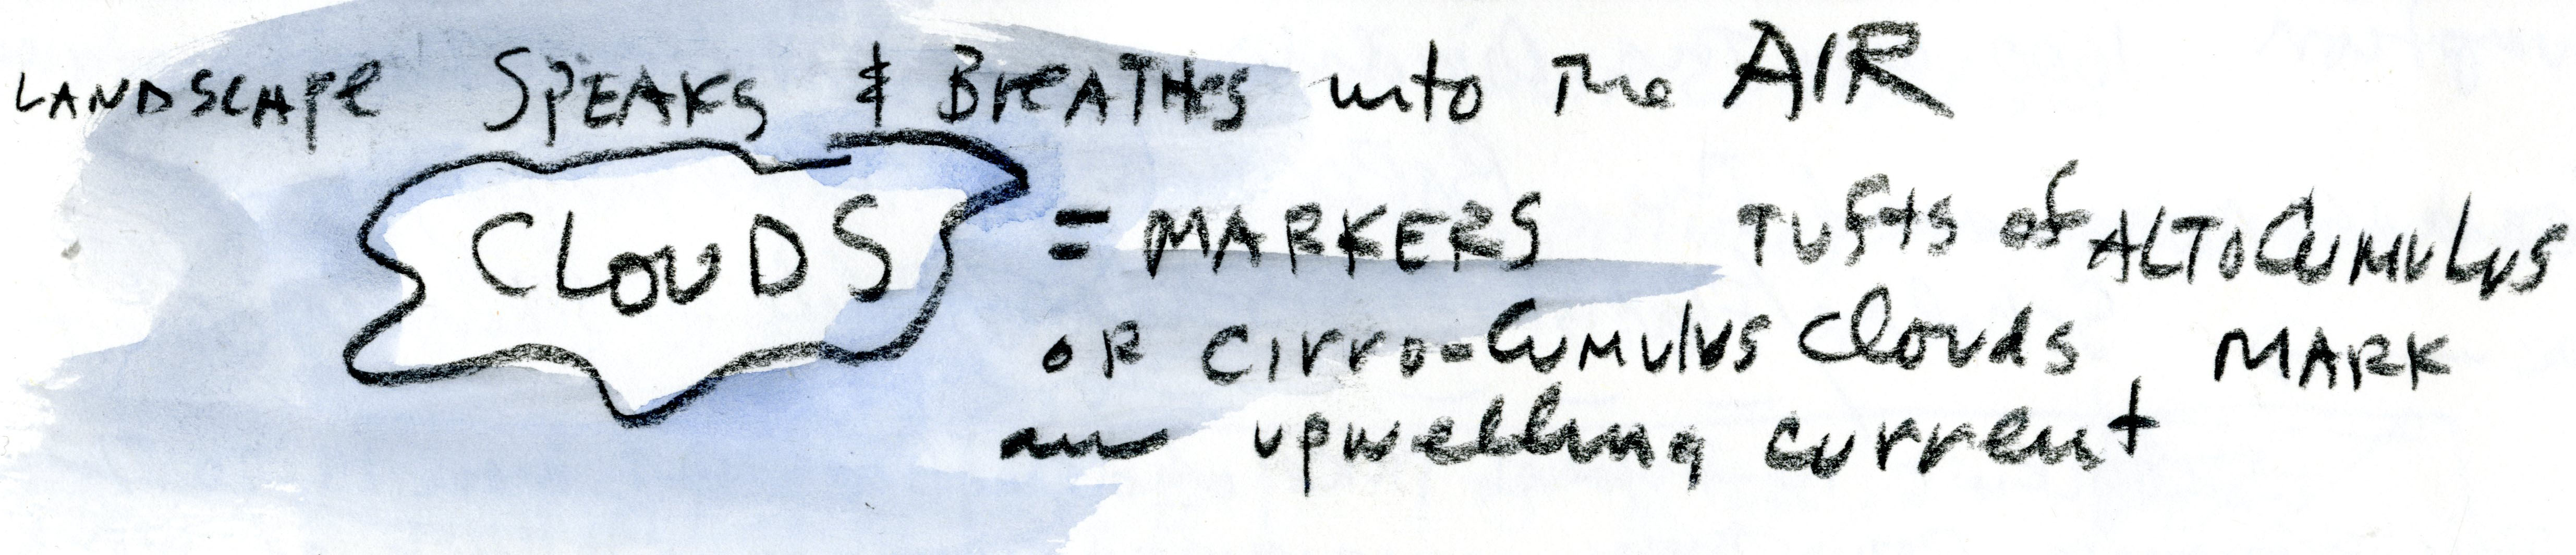 LANDSCAPe SPEAKS & BreATHes into The AIR
CLouDS = MARKERS Tufts of ALToCuMuLus
oR Cirro-CuMulus Clouds MARK
an upwelling current